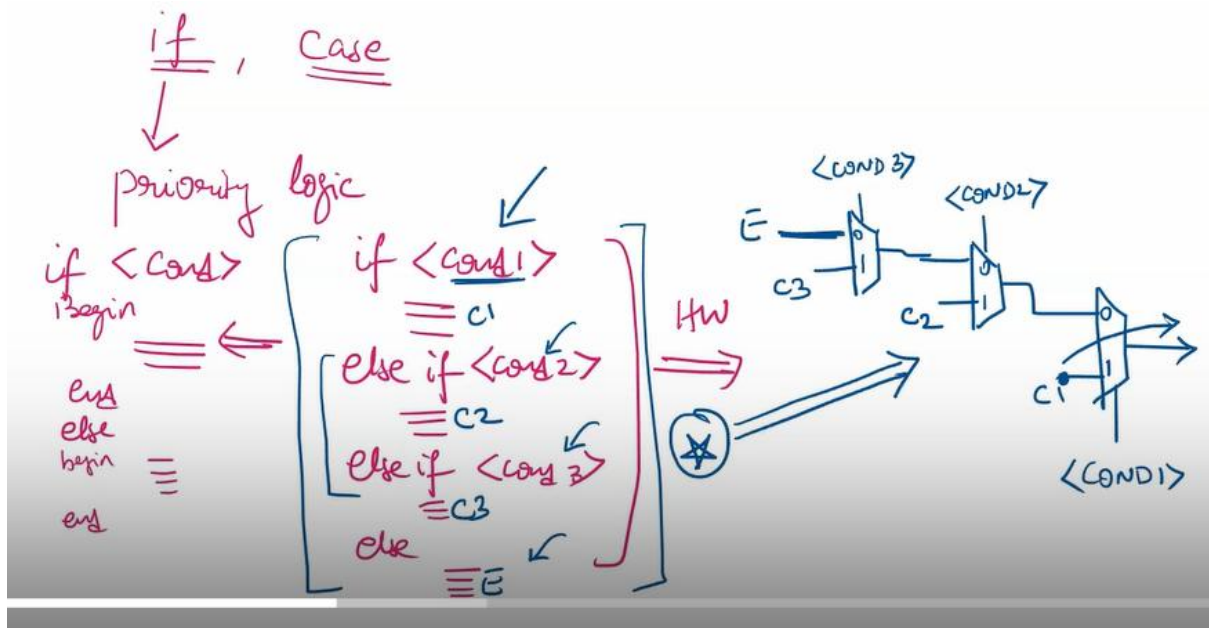 if, Case
priority logic
if <Cond>
Begin
end
else
begin
end
if <Cond1>
C1
else if <Cond2>
C2
else if <Cond 3>
C3
else
E
HW
<COND 3>
<COND2>
E
0
1
C3
0
1
C2
0
1
C1
<COND1>